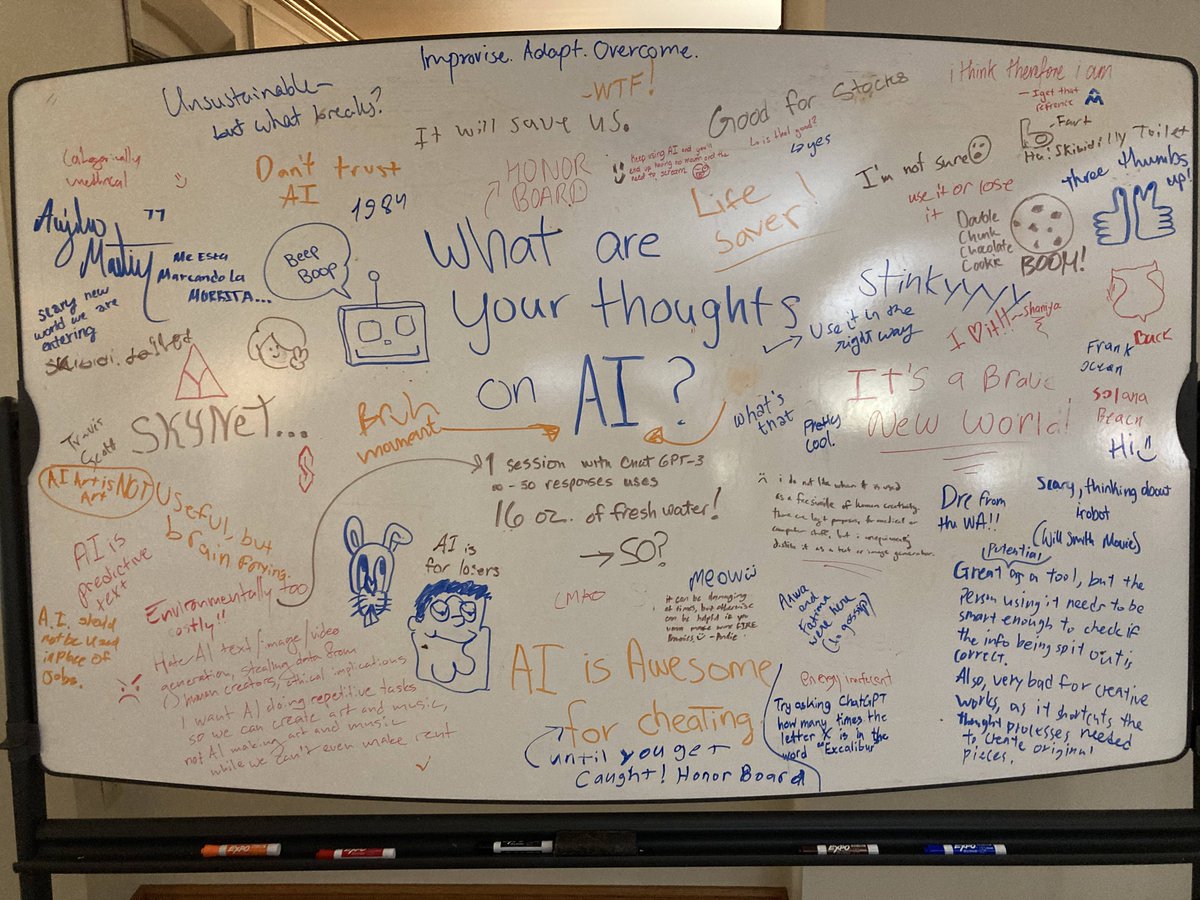 Improvise. Adapt. Overcome.
Unsustainable-
but what breaks?
-WTF!
It will save us.
Good for Stocks
↳ is that good?
↳ yes
i think therefore i am
- I get that
refrence
- Fart
Hai Skibidilly Toilet
Categorically
unethical
Don't trust
AI
HONOR
BOARD
Keep using AI and you'll
end up having no mouth and the
need to scream
I'm not sure
three thumbs
up!
use it or lose
it
1984
Life
Saver!
Double
Chunk
Chocolate
Cookie
BOOM!
Me Esta
Marcando La
MORRITA...
Beep
Boop
What are
your thoughts
on AI?
Stinkyyyy
Use it in the
right way
I ♡ it!!! ~Shaniya
Buck
scary new
world we are
entering
Skibidi toilet
Frank
Ocean
It's a Brave
New World!
Solana
Beach
Hi
SKYNET...
Travis
Scott
Bruh
moment
what's
that
Pretty
Cool.
AI Art is NOT
Art
Useful, but
brain frying.
1 session with Chat GPT-3
∞ - 50 responses uses
16 oz. of fresh water!
→ SO?
i do not like when it is used
as a facsimile of human creativity.
distlike it as a text or image generator.
Dre from
the WA!!
Scary, thinking about
irobot
(Will Smith Movie)
AI is
predictive
text
Environmentally too
costly!!
AI is
for losers
LMAO
Meow
it can be damaging
at times, but otherwise
can be helpful if you
Anwa
and
Fatima
were here
(to gossip)
Potential
Great as a tool, but the
person using it needs to be
smart enough to check if
the info being spit out is
correct.
Also, very bad for creative
works, as it shortcuts the
thought processes needed
to create original
pieces.
A.I. should
not be used
in place of
jobs.
Hate AI text/image/video
generation, stealing data from
human creators, ethical implications
I want AI doing repetitive tasks
so we can create art and music,
not AI making art and music
while we can't even make rent
AI is Awesome
for cheating
until you get
Caught! Honor Board
energy inefficient
Try asking ChatGPT
how many times the
letter X is in the
word "Excalibur"
EXPO
EXPO
EXPO
EXPO
EXPO